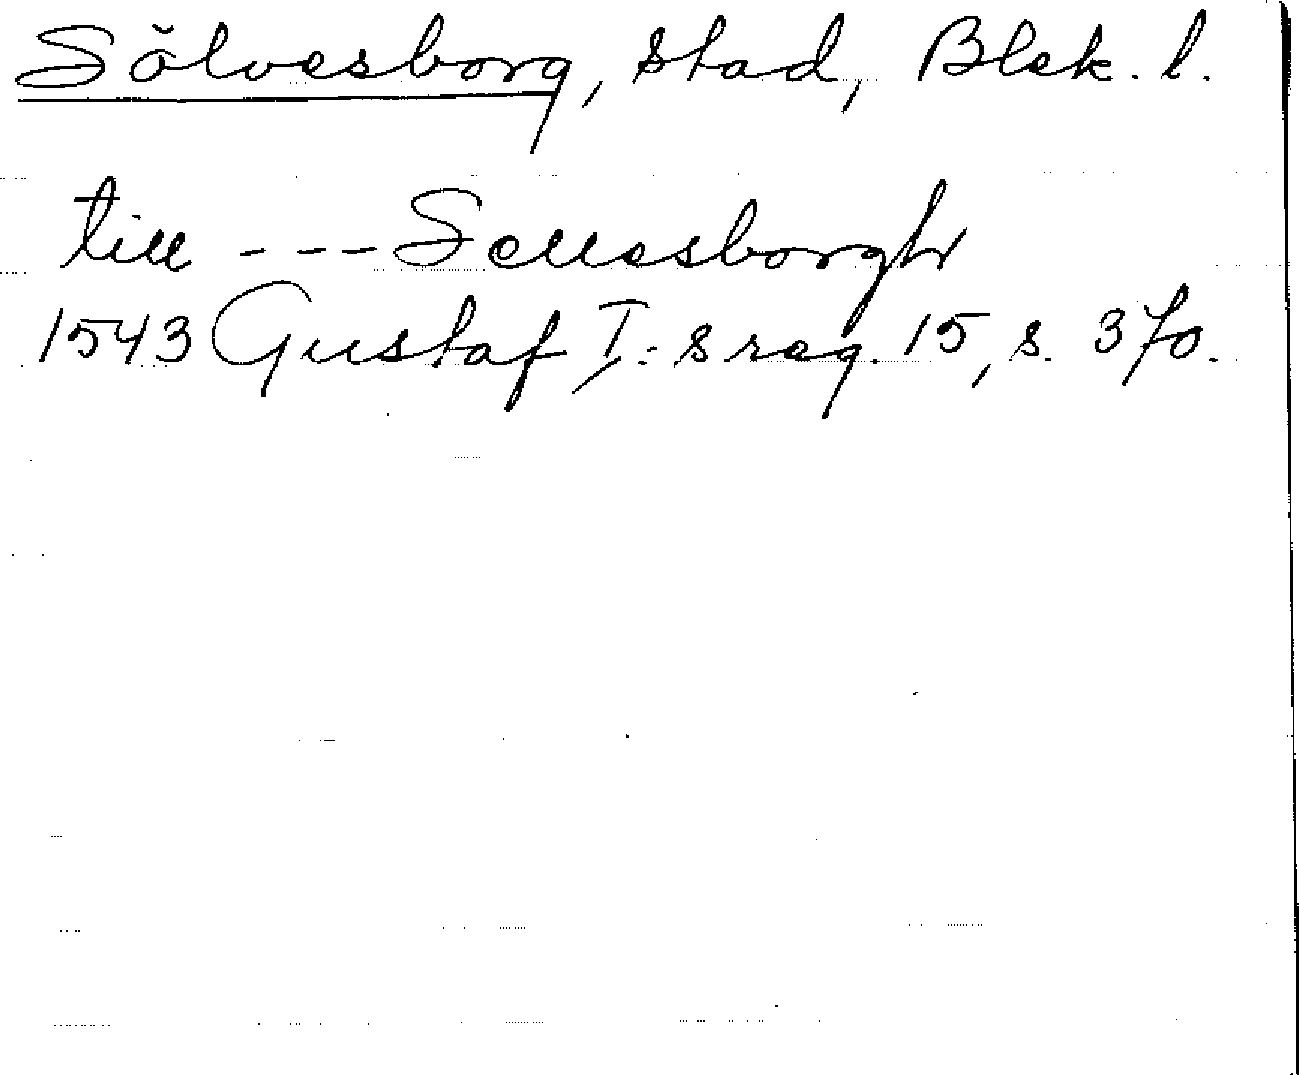 Sölvesborg, stad, Blek. l.
till --- Sellesborgh
1543 Gustaf I:s reg. 15, s. 370.